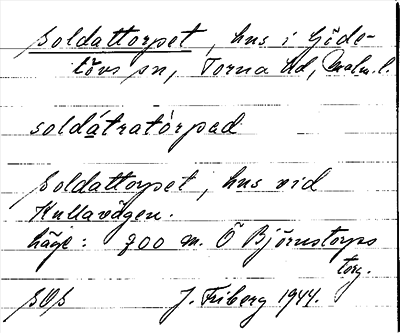 Soldattorpet, hus i Göde-
lövs sn, Torna hd, Malm. l.
soldátratòrpad
Soldattorpet, hus vid
Kullavägen.
läge: 700 m. Ö Björnstorps
torg.
SOS J. Friberg 1944.